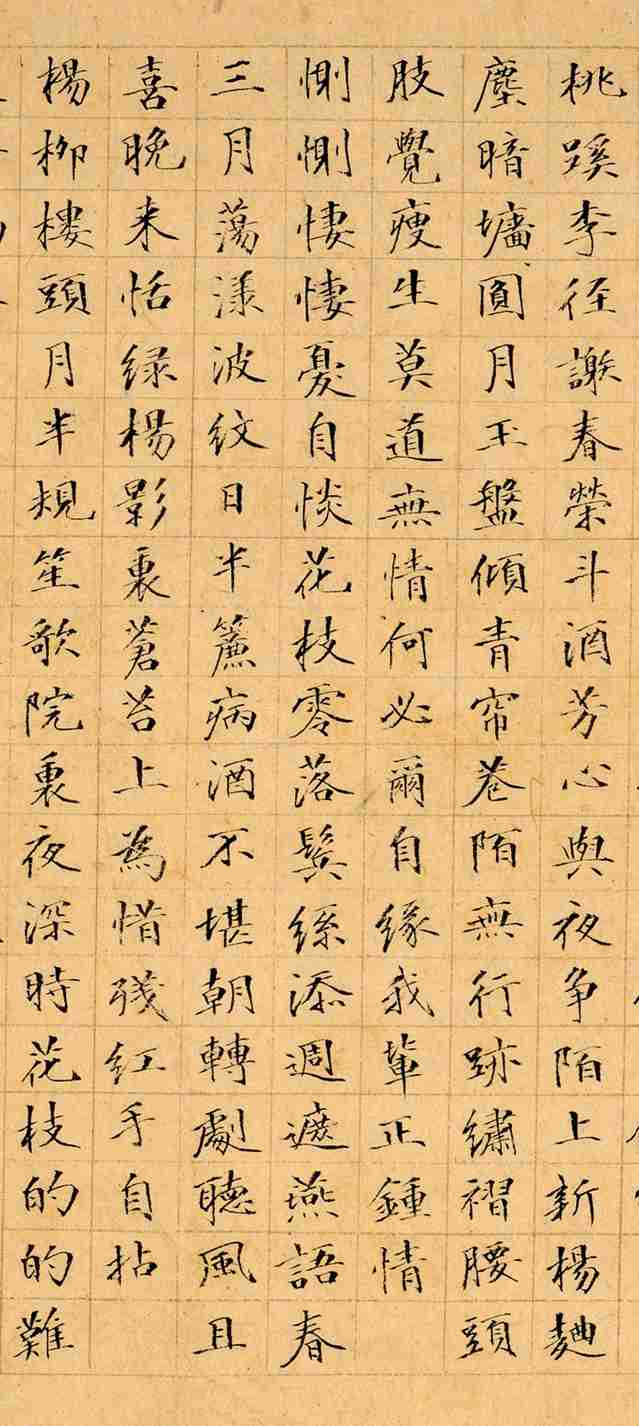 桃蹊李径謝春榮斗酒芳心與夜争陌上新楊麯
塵暗墻圓月玉盤傾青帘巷陌無行跡繡褶腰頭
肢覺瘦生莫道無情何必爾自緣我輩正鍾情
惻惻悽悽憂自惔花枝零落鬓絲添週遮燕語春
三月蕩漾波紋日半簾病酒不堪朝轉劇聽風且
喜晚来恬緑楊影裏蒼苔上為惜残紅手自拈
楊柳樓頭月半規笙歌院裏夜深時花枝的的難